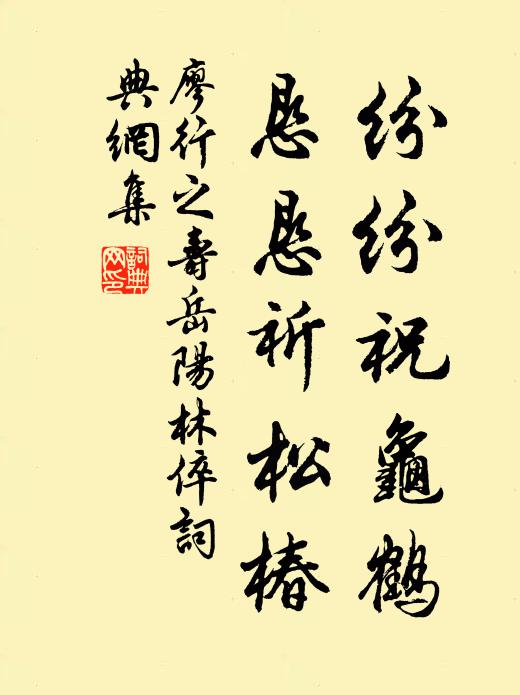 紛紛祝龜鶴
恳恳祈松椿
廖行之壽岳陽林倅詞
典網集
詞典
网印